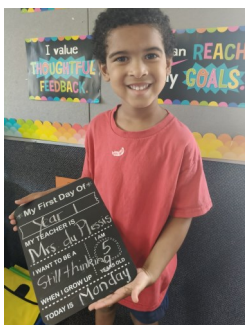 I value
THOUGHTFUL
FEEDBACK.
an REACH
y GOALS.
My First Day Of
Year 1
MY TEACHER IS
Mrs du Plessis
I AM
5
YEARS OLD
I WANT TO BE A
Still thinking
WHEN I GROW UP
TODAY IS Monday